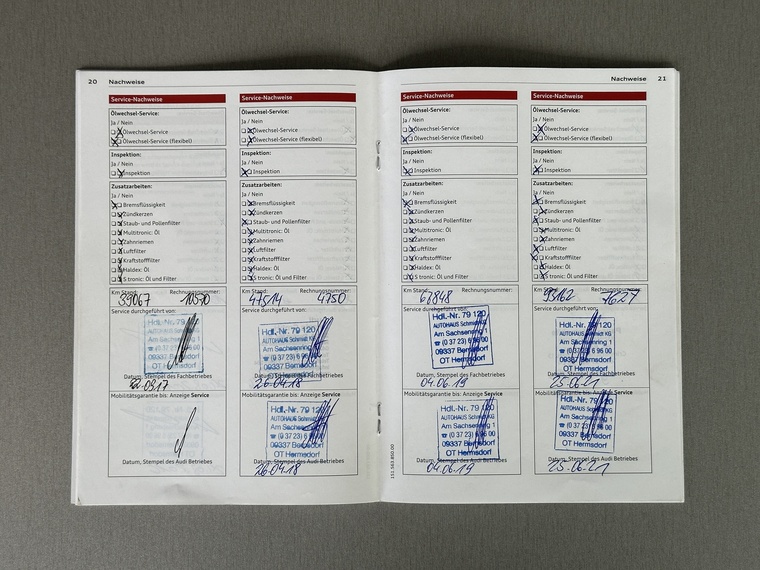 20 Nachweise
Service-Nachweise
Ölwechsel-Service:
Ja / Nein
Ölwechsel-Service
Ölwechsel-Service (flexibel)
Inspektion:
Ja / Nein
Inspektion
Zusatzarbeiten:
Ja / Nein
Bremsflüssigkeit
Zündkerzen
Staub- und Pollenfilter
Multitronic: Öl
Zahnriemen
Luftfilter
Kraftstofffilter
Haldex: Öl
S tronic: Öl und Filter
Km Stand: Rechnungsnummer:
39067 10570
Service durchgeführt von:
Hdl.-Nr. 79 120
AUTOHAUS Schmidt KG
Am Sachsenring 1
09337 Bernsdorf
OT Hermsdorf
Datum, Stempel des Fachbetriebes
22.03.17
Mobilitätsgarantie bis: Anzeige Service
Datum, Stempel des Audi Betriebes
Service-Nachweise
Ölwechsel-Service:
Ja / Nein
Ölwechsel-Service
Ölwechsel-Service (flexibel)
Inspektion:
Ja / Nein
Inspektion
Zusatzarbeiten:
Ja / Nein
Bremsflüssigkeit
Zündkerzen
Staub- und Pollenfilter
Multitronic: Öl
Zahnriemen
Luftfilter
Kraftstofffilter
Haldex: Öl
S tronic: Öl und Filter
Km Stand: Rechnungsnummer:
47514 4750
Service durchgeführt von:
Hdl.-Nr. 79 120
AUTOHAUS Schmidt KG
Am Sachsenring 1
☎ (0 37 23) 6 96 00
09337 Bernsdorf
OT Hermsdorf
Datum, Stempel des Fachbetriebes
26.04.18
Mobilitätsgarantie bis: Anzeige Service
Hdl.-Nr. 79 120
AUTOHAUS Schmidt KG
Am Sachsenring 1
☎ (0 37 23) 6 96 00
09337 Bernsdorf
OT Hermsdorf
Datum, Stempel des Audi Betriebes
26.04.18
Nachweise 21
Service-Nachweise
Ölwechsel-Service:
Ja / Nein
Ölwechsel-Service
Ölwechsel-Service (flexibel)
Inspektion:
Ja / Nein
Inspektion
Zusatzarbeiten:
Ja / Nein
Bremsflüssigkeit
Zündkerzen
Staub- und Pollenfilter
Multitronic: Öl
Zahnriemen
Luftfilter
Kraftstofffilter
Haldex: Öl
S tronic: Öl und Filter
Km Stand: Rechnungsnummer:
67848
Service durchgeführt von:
Hdl.-Nr. 79 120
AUTOHAUS Schmidt KG
Am Sachsenring 1
☎ (0 37 23) 6 96 00
09337 Bernsdorf
OT Hermsdorf
Datum, Stempel des Fachbetriebes
04.06.19
Mobilitätsgarantie bis: Anzeige Service
Hdl.-Nr. 79 120
AUTOHAUS Schmidt KG
Am Sachsenring 1
☎ (0 37 23) 6 96 00
09337 Bernsdorf
OT Hermsdorf
Datum, Stempel des Audi Betriebes
04.06.19
151.563.850.00
Service-Nachweise
Ölwechsel-Service:
Ja / Nein
Ölwechsel-Service
Ölwechsel-Service (flexibel)
Inspektion:
Ja / Nein
Inspektion
Zusatzarbeiten:
Ja / Nein
Bremsflüssigkeit
Zündkerzen
Staub- und Pollenfilter
Multitronic: Öl
Zahnriemen
Luftfilter
Kraftstofffilter
Haldex: Öl
S tronic: Öl und Filter
Km Stand: Rechnungsnummer:
93162 7627
Service durchgeführt von:
Hdl.-Nr. 79 120
AUTOHAUS Schmidt KG
Am Sachsenring 1
☎ (0 37 23) 6 96 00
09337 Bernsdorf
OT Hermsdorf
Datum, Stempel des Fachbetriebes
25.06.21
Mobilitätsgarantie bis: Anzeige Service
Hdl.-Nr. 79 120
AUTOHAUS Schmidt KG
Am Sachsenring 1
☎ (0 37 23) 6 96 00
09337 Bernsdorf
OT Hermsdorf
Datum, Stempel des Audi Betriebes
25.06.21